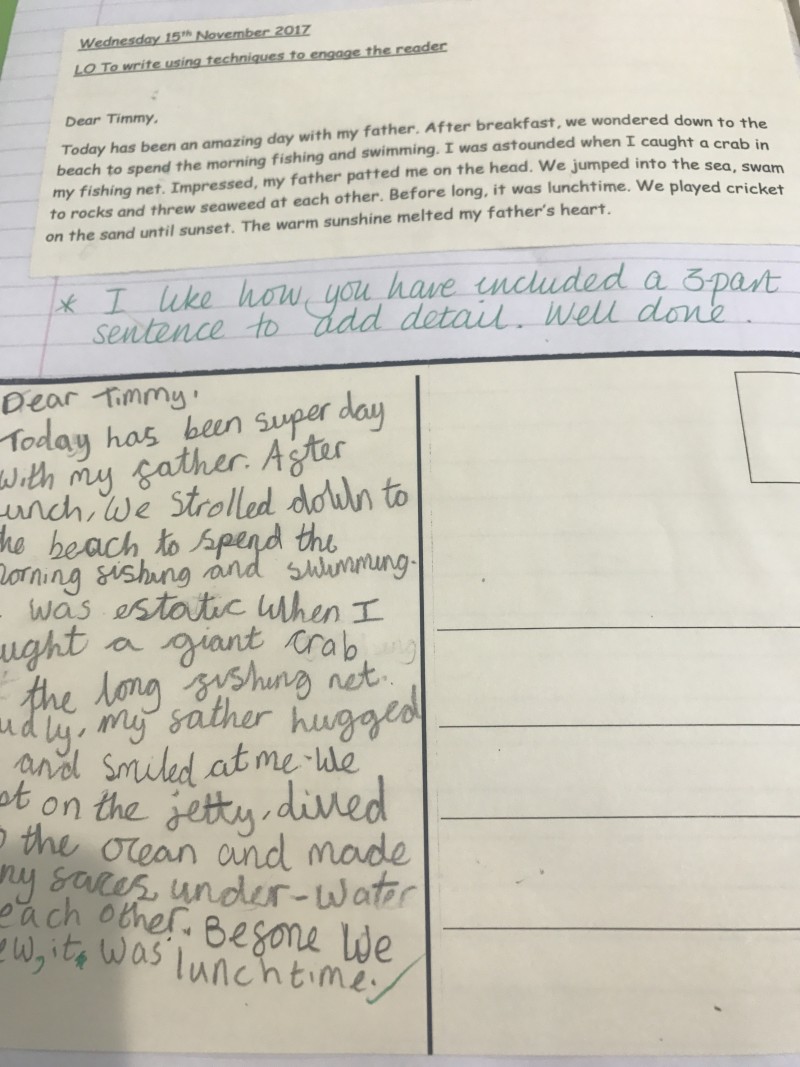 Wednesday 15th November 2017
LO To write using techniques to engage the reader
Dear Timmy,
Today has been an amazing day with my father. After breakfast, we wondered down to the
beach to spend the morning fishing and swimming. I was astounded when I caught a crab in
my fishing net. Impressed, my father patted me on the head. We jumped into the sea, swam
to rocks and threw seaweed at each other. Before long, it was lunchtime. We played cricket
on the sand until sunset. The warm sunshine melted my father's heart.
* I like how you have included a 3-part
sentence to add detail. Well done.
Dear Timmy,
Today has been super day
with my father. After
unch, We Strolled down to
he beach to spend the
orning fishing and swimming.
was estatic when I
ught a giant crab
the long fishing net.
udly, my father hugged
and smiled at me. We
ot on the jetty, dived
the ocean and made
ny faces under-water
each other. Before We
ew, it was lunchtime.